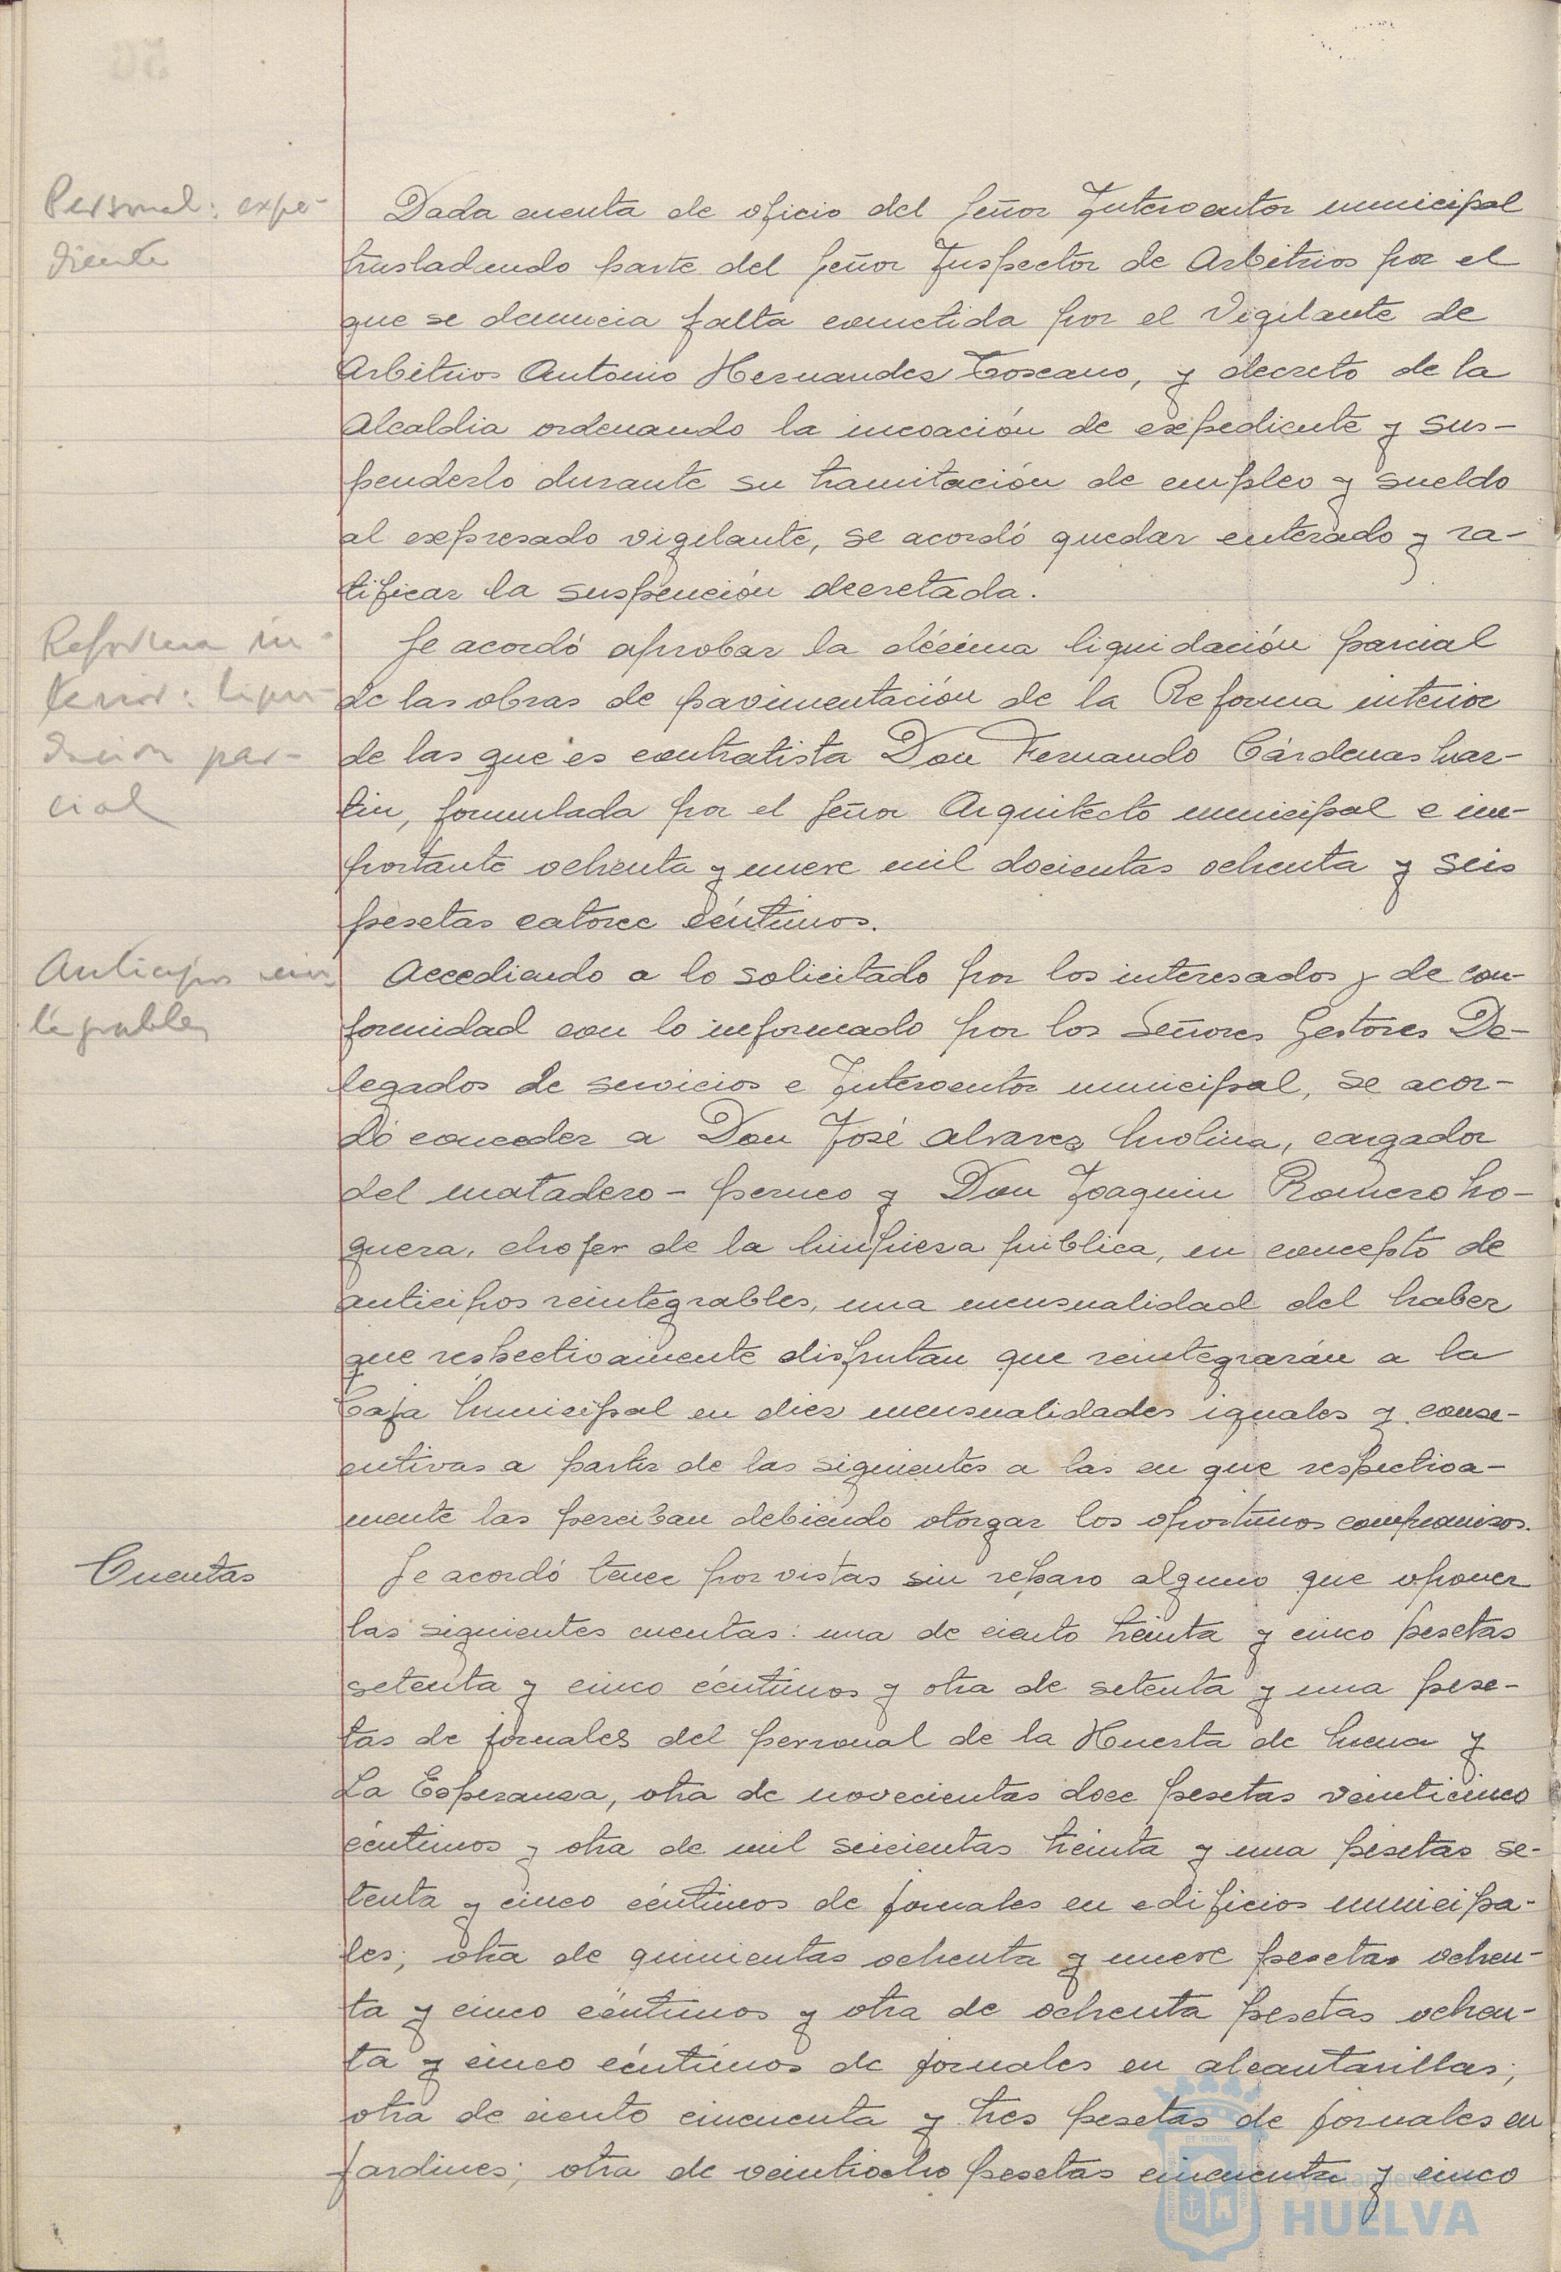 Personal: expe-
diente
Dada cuenta de oficio del Señor Interventor municipal
trasladando parte del Señor Inspector de Arbitrios por el
que se denuncia falta cometida por el Vigilante de
Arbitrios Antonio Hernandez Toscano, y decreto de la
Alcaldia ordenando la incoación de expediente y sus-
penderlo durante su tramitación de empleo y sueldo
al expresado vigilante, se acordó quedar enterado y ra-
tificar la suspención decretada.
Reforma in-
terior: liqui-
dacion par-
cial
Se acordó aprobar la décima liquidación parcial
de las obras de pavimentación de la Reforma interior
de las que es contratista Don Fernando Cárdenas Mar-
tin, formulada por el Señor Arquitecto municipal e im-
portante ochenta y nueve mil docientas ochenta y seis
pesetas catorce céntimos.
Anticipos rein-
tegrables
Accediendo a lo solicitado por los interesados y de con-
formidad con lo informado por los Señores Gestores De-
legados de servicios e Interventor municipal, se acor-
dó conceder a Don José Alvarez Molina, cargador
del matadero-perneo y Don Joaquin Romero No-
guera, chofer de la limpieza pública, en concepto de
anticipos reintegrables, una mensualidad del haber
que respectivamente disfrutan que reintegrarán a la
Caja Municipal en diez mensualidades iguales y conse-
cutivas a partir de las siguientes a las en que respectiva-
mente las perciban debiendo otorgar los oportunos compromisos.
Cuentas
Se acordó tener por vistas sin reparo alguno que oponer
las siguientes cuentas: una de ciento treinta y cinco pesetas
setenta y cinco céntimos y otra de setenta y una pese-
tas de jornales del personal de la Huerta de Mena y
La Esperanza, otra de novecientas doce pesetas veinticinco
céntimos y otra de mil seicientas treinta y una pesetas se-
tenta y cinco céntimos de jornales en edificios municipa-
les; otra de quinientas ochenta y nueve pesetas ochen-
ta y cinco céntimos y otra de ochenta pesetas ochen-
ta y cinco céntimos de jornales en alcantarillas;
otra de ciento cincuenta y tres pesetas de jornales en
jardines; otra de veintiocho pesetas cincuenta y cinco
Ayuntamiento de
HUELVA